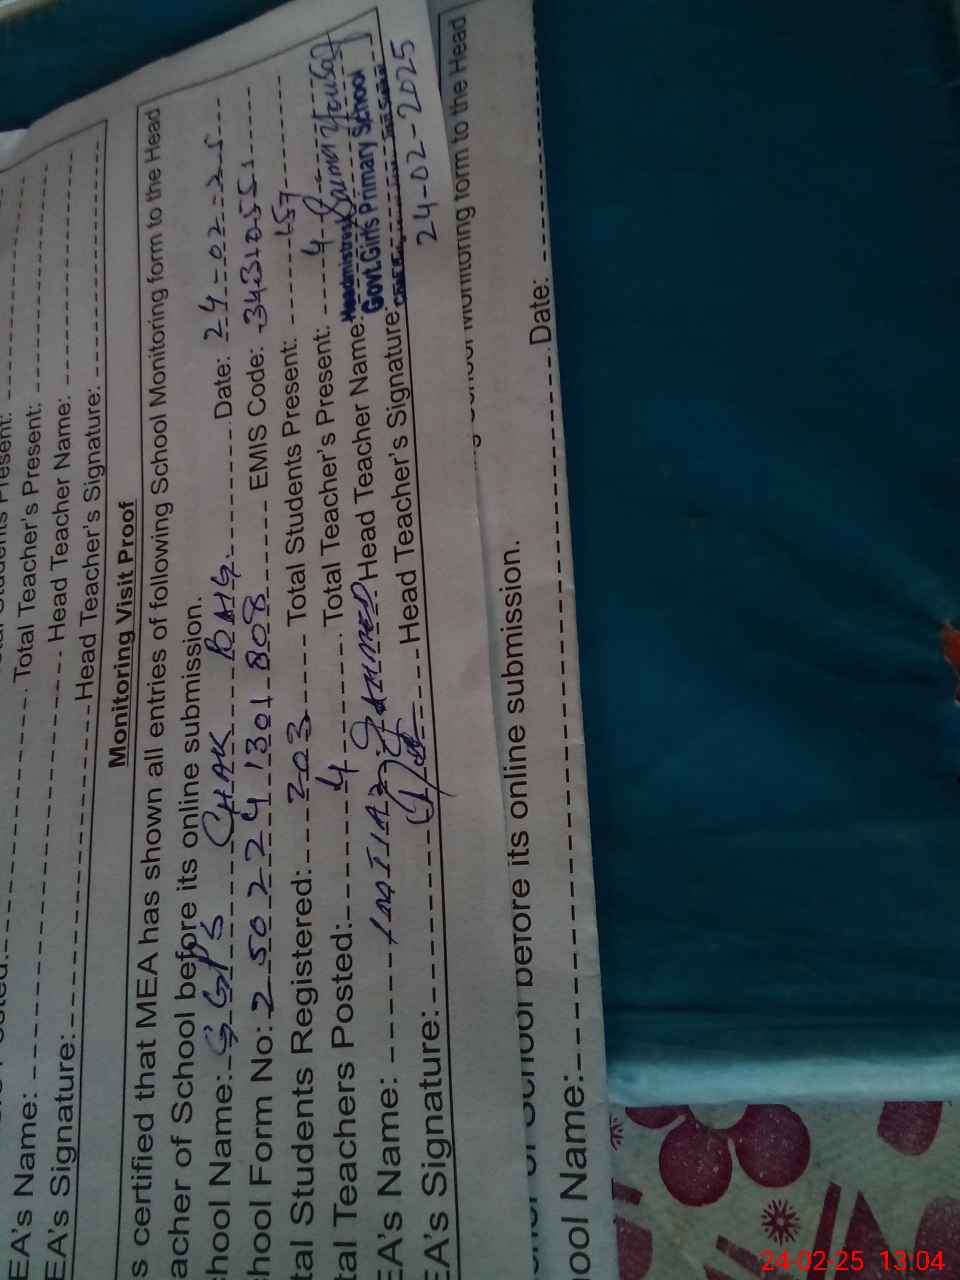 Total Teacher's Present:
EA's Name: Head Teacher Name:
EA's Signature: Head Teacher's Signature:
Monitoring Visit Proof
s certified that MEA has shown all entries of following School Monitoring form to the Head
acher of School before its online submission.
hool Name: GGPS CHAK Date: 24-02-25
hool Form No: 2502241301808 EMIS Code: 34310551
tal Students Registered: 203 Total Students Present: 157
tal Teachers Posted: 4 Total Teacher's Present: 4
EA's Name: IMTIAZ AHMED Head Teacher Name: Saima Yousaf
Headmistress
Govt. Girls Primary School
EA's Signature: Head Teacher's Signature:
24-02-2025
Monitoring form to the Head
before its online submission.
ool Name: Date:
24-02-25 13:04